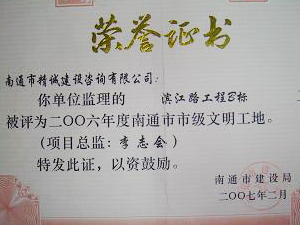 荣誉证书
南通市精诚建设咨询有限公司:
你单位监理的 滨江路工程B标
被评为二〇〇六年度南通市市级文明工地。
(项目总监: 李志会)
特发此证,以资鼓励。
南通市建设局
二〇〇七年二月